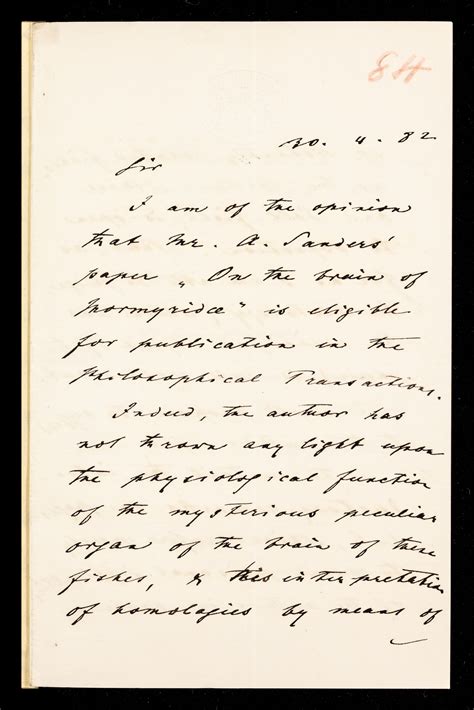 84
30. 4. 82
Sir
I am of the opinion
that Mr. A. Sanders'
paper „On the brain of
Mormyridæ" is eligible
for publication in the
Philosophical Transactions.
Indeed, the author has
not thrown any light upon
the physiological function
of the mysterious peculiar
organ of the brain of these
fishes, & his interpretation
of homologies by means of